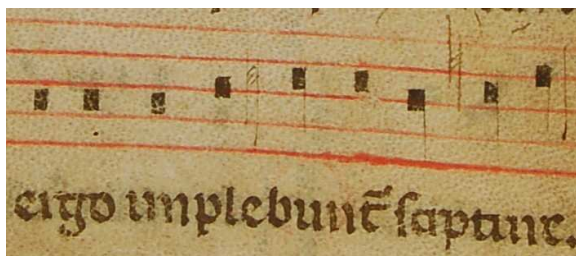 ergo implebunt̄ ſcipture.